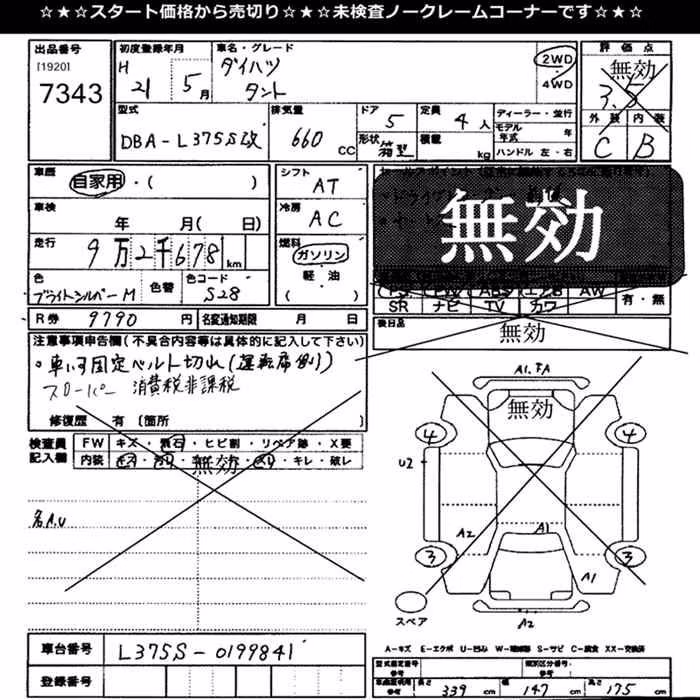 ☆★☆スタート価格から売切り☆★☆未検査ノークレームコーナーです☆★☆
出品番号
[1920]
7343
初度登録年月
H 21 5月
車名・グレード
ダイハツ
タント
2WD
4WD
評価点
無効
3.5
外装 内装
C B
型式
DBA-L375S改
排気量
660 CC
ドア 5
形状 箱型
定員 4人
積載 kg
ディーラー・並行
モデル年式 年
ハンドル 左・右
車歴
自家用・( )
車検
年 月( 日)
走行
9万2千678 km
色
ブライトシルバーM
色替
色コード
S28
シフト
AT
冷房
AC
燃料
ガソリン
軽・油
( )
無効
PS PW ABS エアB AW
SR ナビ TV カワ
有・無
R券 9790 円
名変通知期限 月 日
後日品
無効
注意事項申告欄(不具合内容等は具体的に記入して下さい)
・車いす固定ベルト切れ(運転席側)
スローパー 消費税非課税
修復歴 有(箇所 )
検査員記入欄
FW キズ・飛石・ヒビ割・リペア跡・X要
内装 無効 キレ・破レ
各A.U
A1.FA
無効
4 4
U2
A2 A1
3 3
A1
スペア
A2
車台番号
L375S-0199841
登録番号
A-キズ E-エクボ U-凹み W-補修跡 S-サビ C-腐食 XX-交換済
型式指定番号
参考
類別区分番号
参考
車両証明用
参考
長さ 339 cm
幅 147 cm
高さ 175 cm